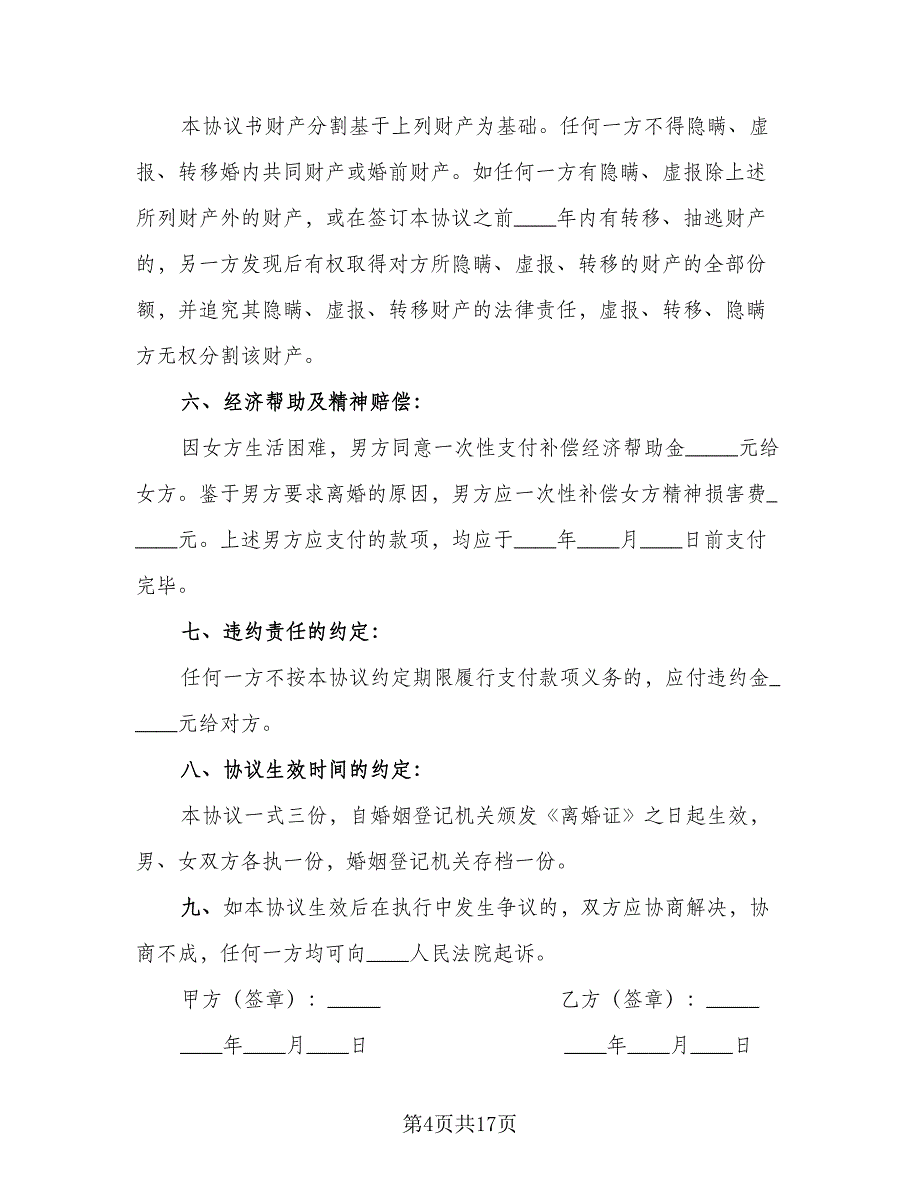 本协议书财产分割基于上列财产为基础。任何一方不得隐瞒、虚
报、转移婚内共同财产或婚前财产。如任何一方有隐瞒、虚报除上述
所列财产外的财产，或在签订本协议之前____年内有转移、抽逃财产
的，另一方发现后有权取得对方所隐瞒、虚报、转移的财产的全部份
额，并追究其隐瞒、虚报、转移财产的法律责任，虚报、转移、隐瞒
方无权分割该财产。
六、经济帮助及精神赔偿：
因女方生活困难，男方同意一次性支付补偿经济帮助金_____元给
女方。鉴于男方要求离婚的原因，男方应一次性补偿女方精神损害费_
____元。上述男方应支付的款项，均应于____年____月____日前支付
完毕。
七、违约责任的约定：
任何一方不按本协议约定期限履行支付款项义务的，应付违约金_
____元给对方。
八、协议生效时间的约定：
本协议一式三份，自婚姻登记机关颁发《离婚证》之日起生效，
男、女双方各执一份，婚姻登记机关存档一份。
九、如本协议生效后在执行中发生争议的，双方应协商解决，协
商不成，任何一方均可向____人民法院起诉。
甲方（签章）：_____ 乙方（签章）：_____
____年____月____日 ____年____月____日
第4页共17页